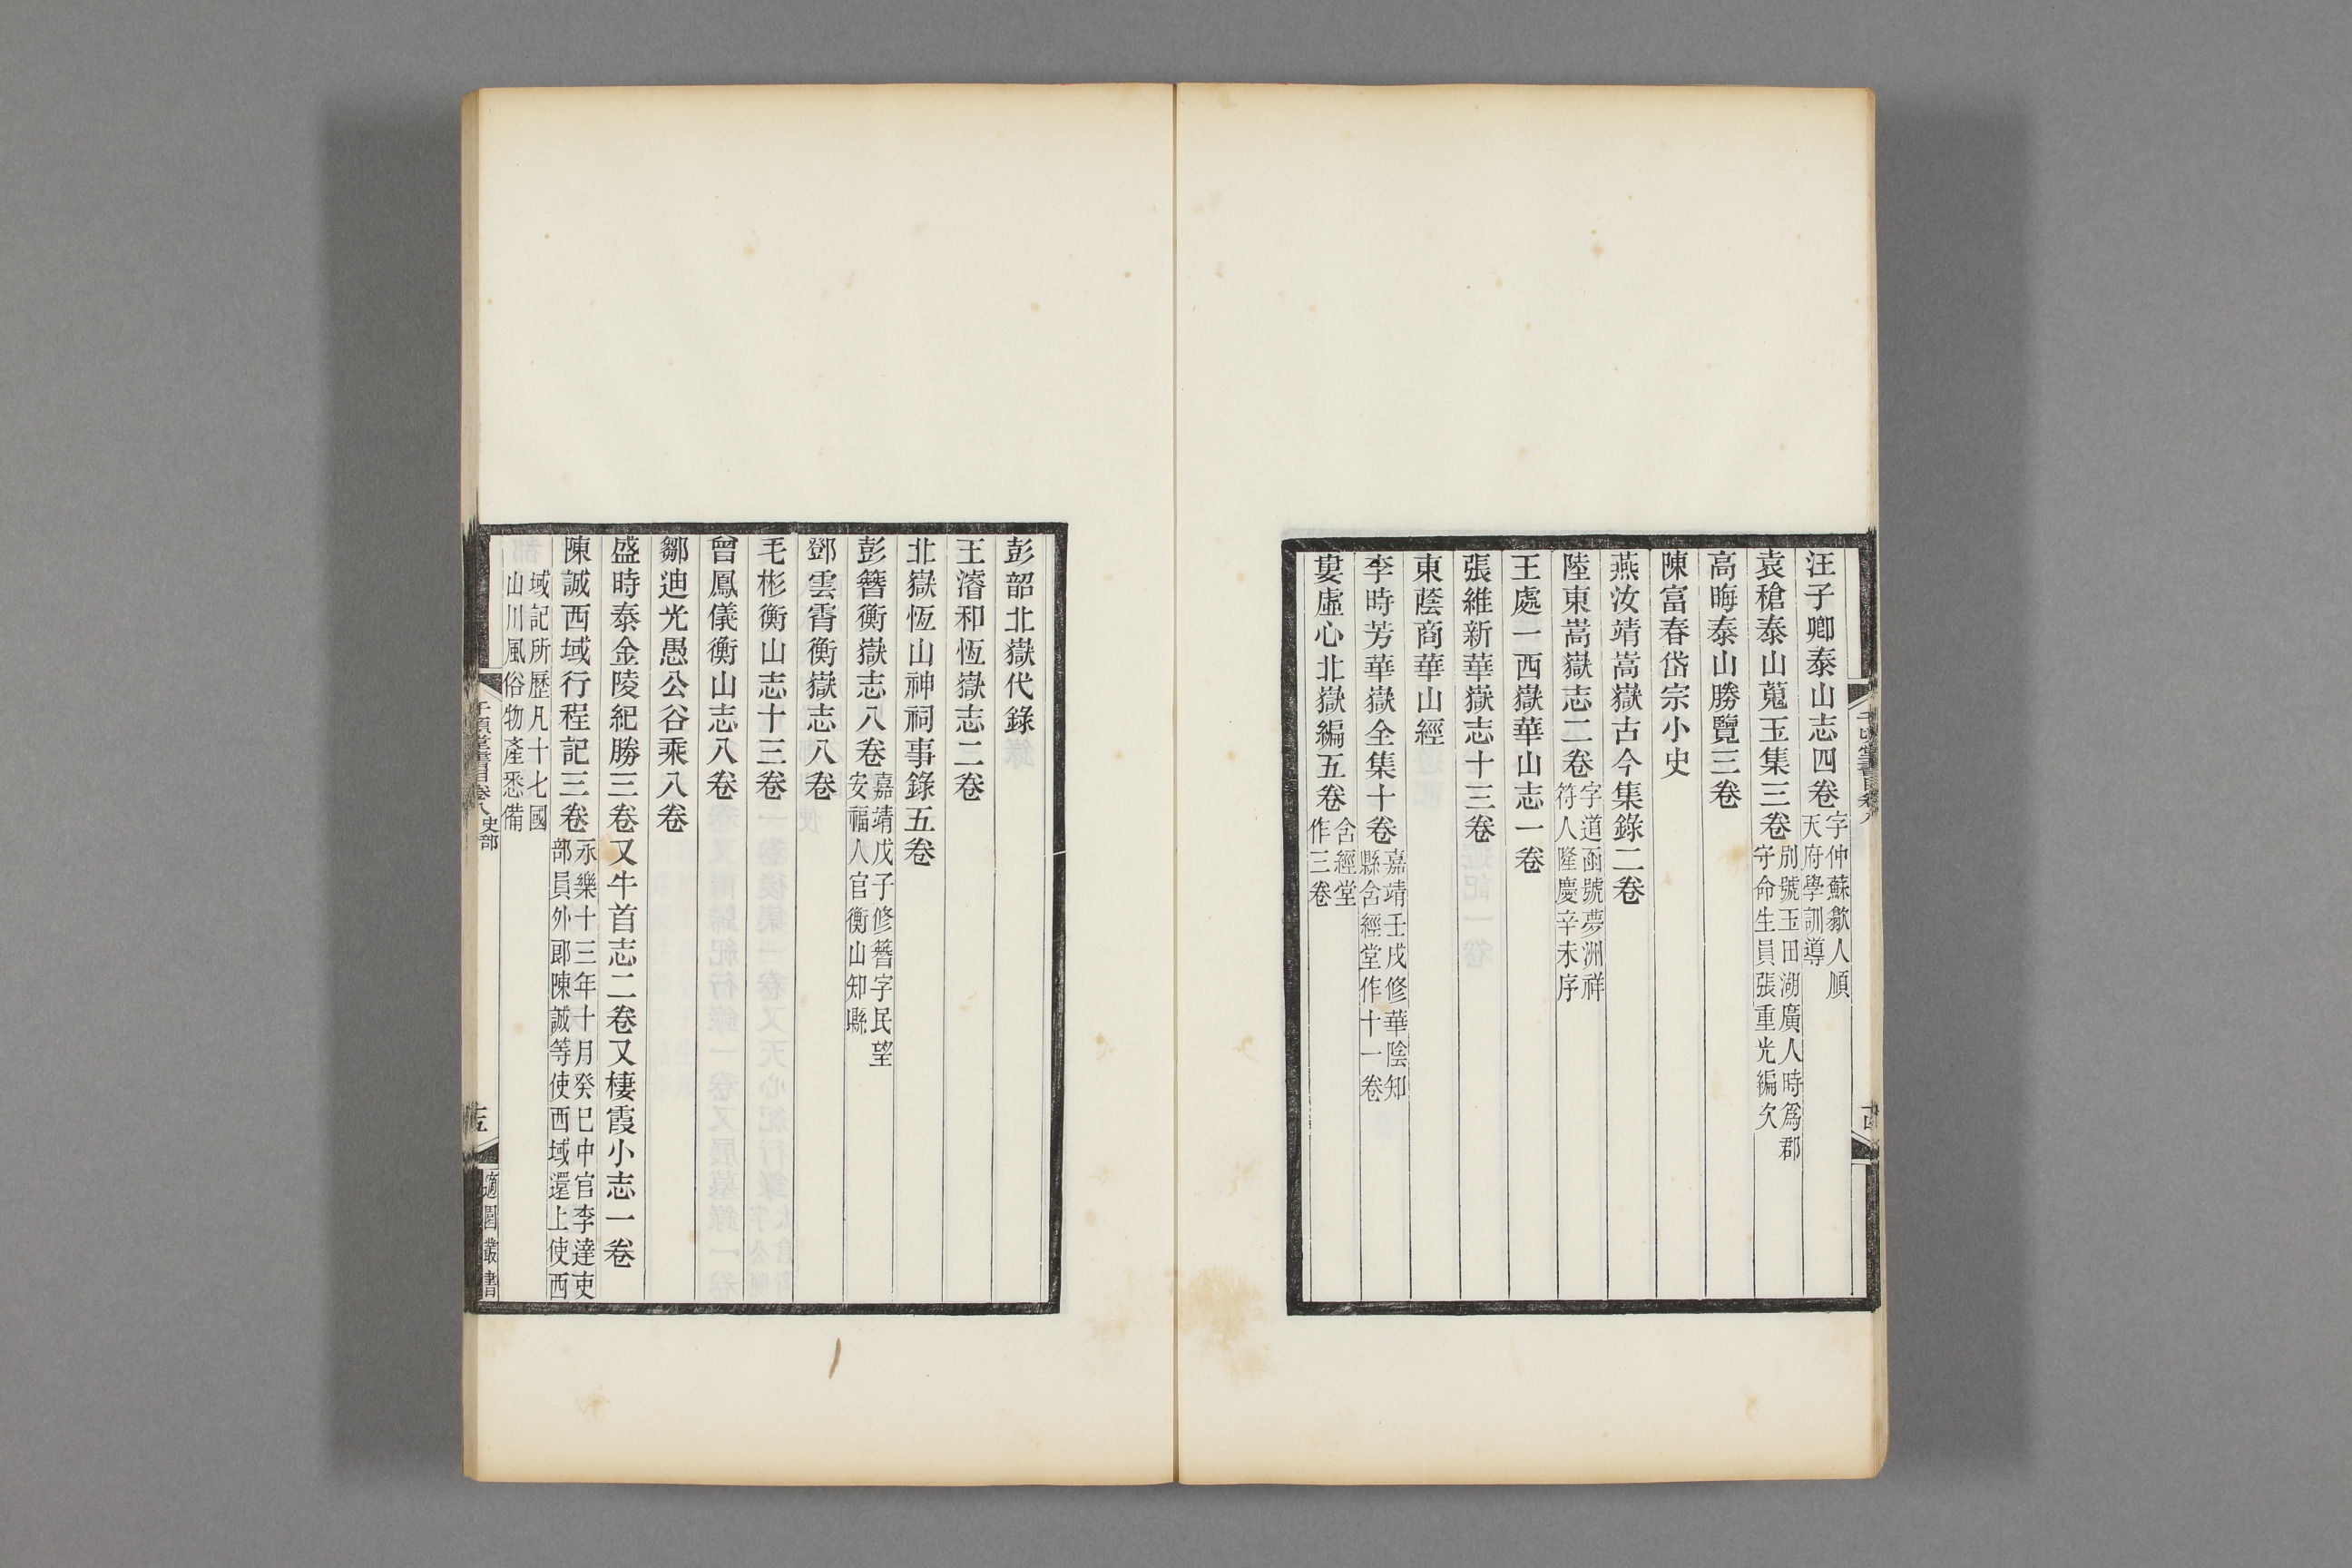 汪子卿泰山志四卷字仲蘇歙人順
天府學訓導
袁稽泰山蒐玉集三卷別號玉田湖廣人時爲郡
守命生員張重光編次
高晦泰山勝覽三卷
陳富春岱宗小史
燕汝靖嵩嶽古今集錄二卷
陸東嵩嶽志二卷字道函號夢洲祥
符人隆慶辛未序
王處一西嶽華山志一卷
張維新華嶽志十三卷
東蔭商華山經
李時芳華嶽全集十卷嘉靖壬戌修華陰知
縣含經堂作十一卷
婁虛心北嶽編五卷含經堂
作三卷
彭韶北嶽代錄
王濬和恆嶽志二卷
北嶽恆山神祠事錄五卷
彭簪衡嶽志八卷嘉靖戊子修簪字民望
安福人官衡山知縣
鄧雲霄衡嶽志八卷
毛彬衡山志十三卷
曾鳳儀衡山志八卷
鄒迪光愚公谷乘八卷
盛時泰金陵紀勝三卷又牛首志二卷又棲霞小志一卷
陳誠西域行程記三卷永樂十三年十月癸巳中官李達吏
部員外郎陳誠等使西域還上使西
域記所歷凡十七國
山川風俗物產悉備
千頃堂書目卷八 史部
十五
適園叢書